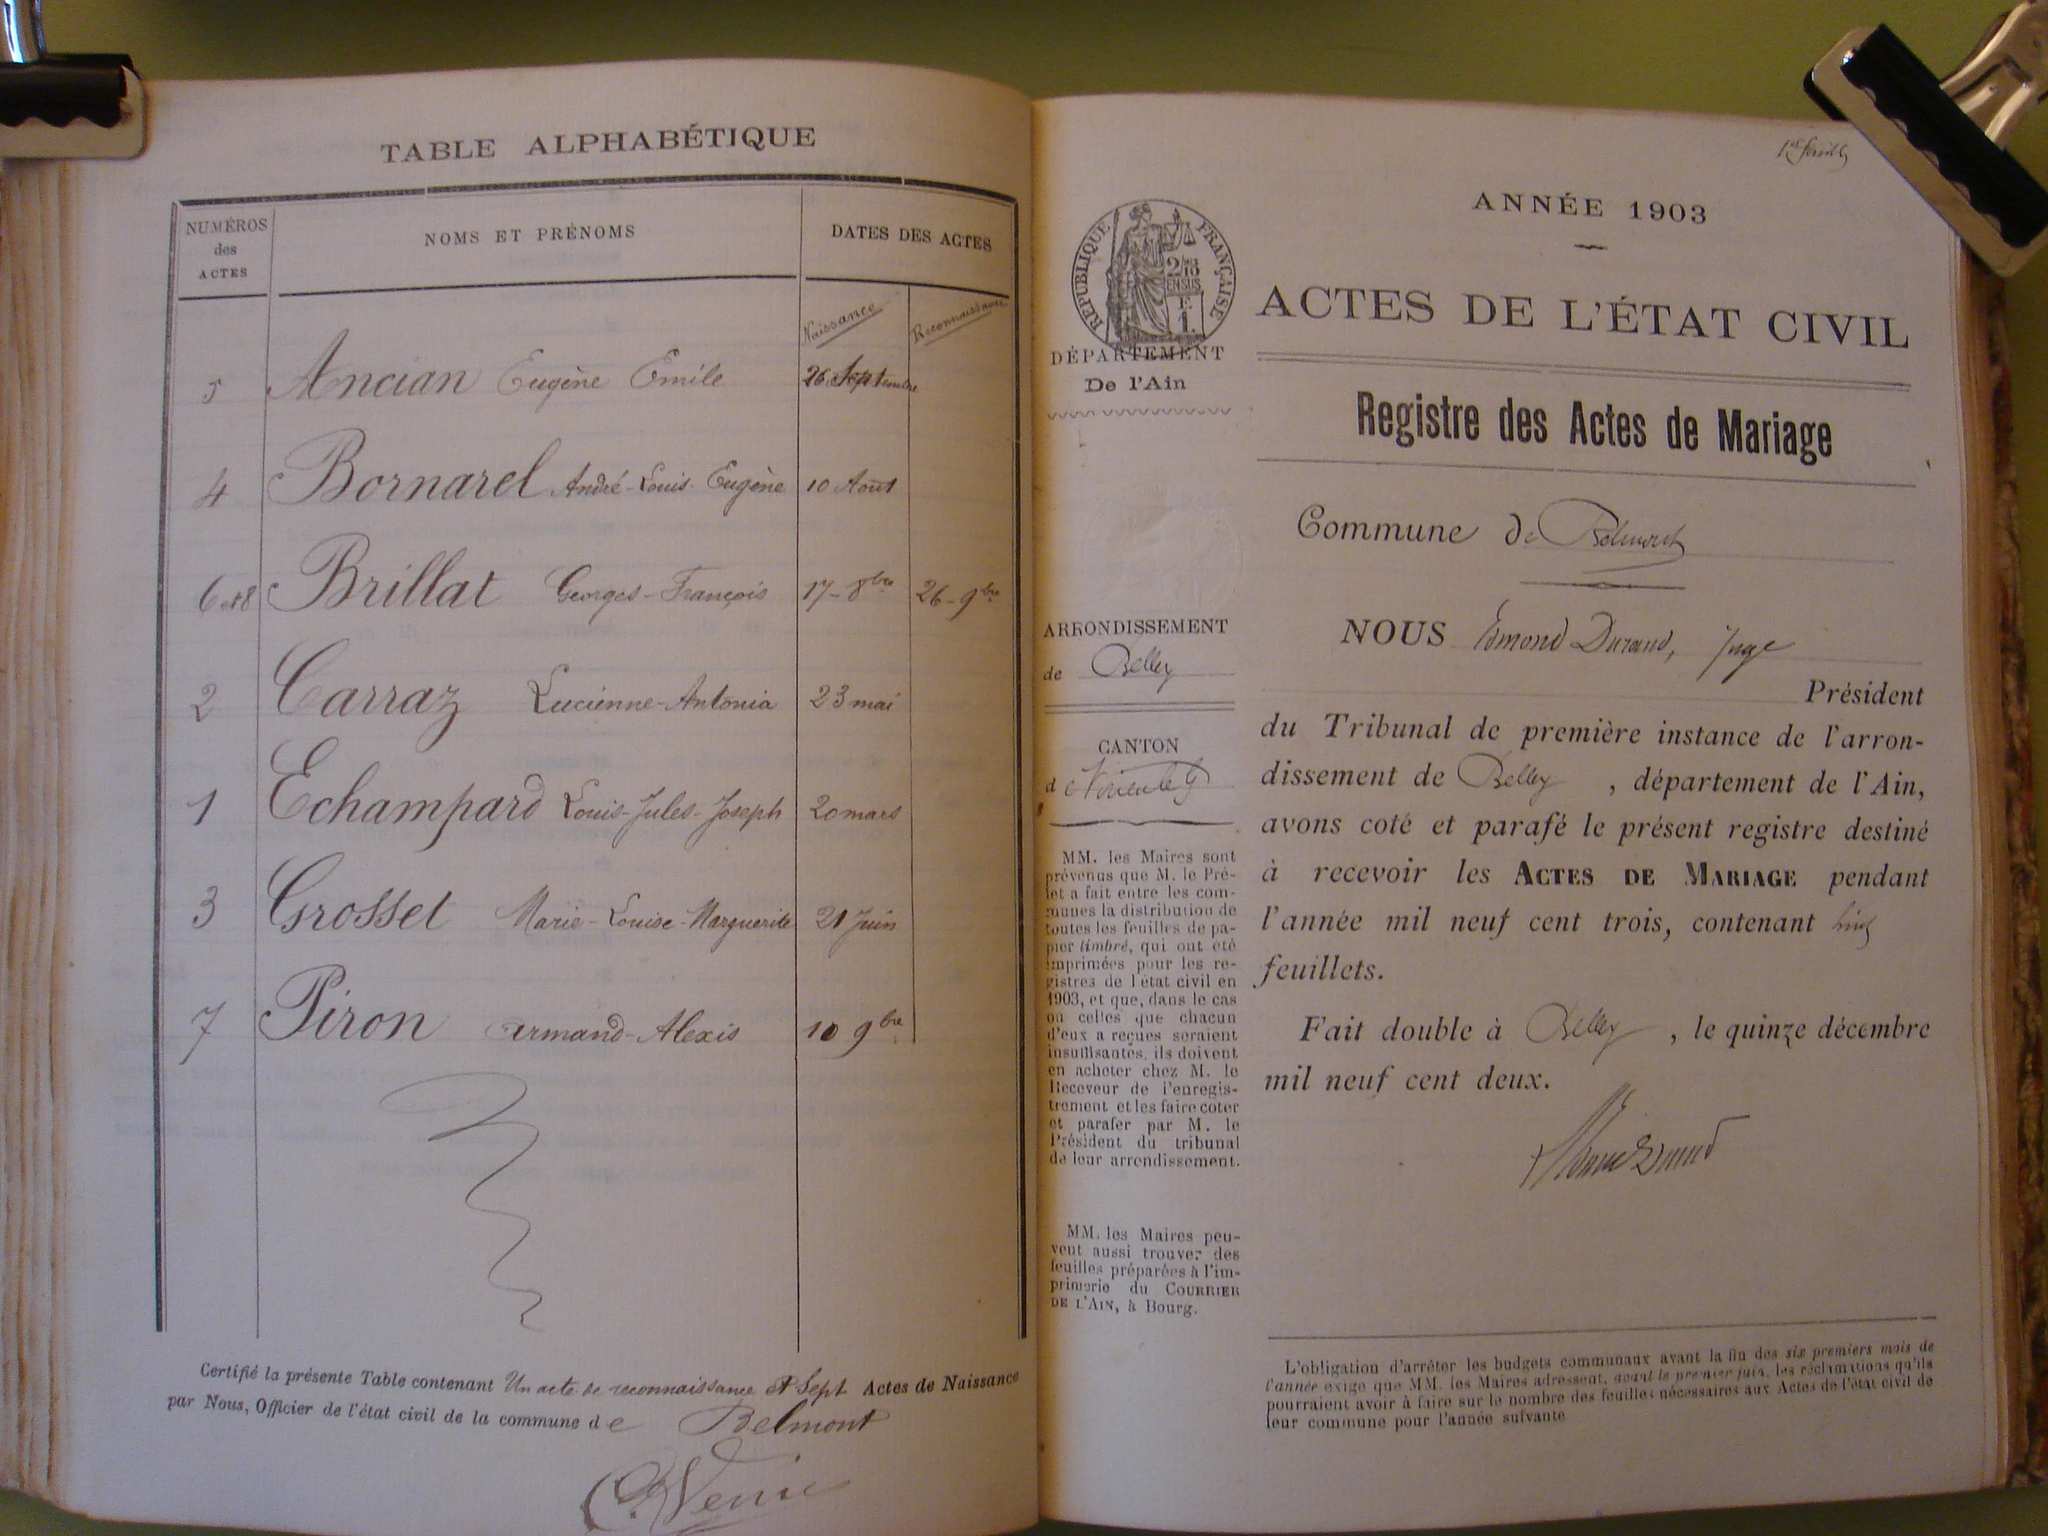 TABLE ALPHABÉTIQUE
NUMÉROS des ACTES
NOMS ET PRÉNOMS
DATES DES ACTES
Naissance Reconnaissance
5 Ancian Eugène Emile 26 Septembre
4 Bornarel André-Louis-Eugène 10 Août
6 et 8 Brillat Georges-François 17-8bre 26-9bre
2 Carraz Lucienne-Antonia 23 mai
1 Echampard Louis-Jules-Joseph 20 mars
3 Grosset Marie-Louise-Marguerite 21 Juin
7 Piron Armand-Alexis 10 9bre
Certifié la présente Table contenant Un acte de reconnaissance et Sept Actes de Naissance
par Nous, Officier de l'état civil de la commune de Belmont
RÉPUBLIQUE FRANÇAISE
DÉPARTEMENT
De l'Ain
ARRONDISSEMENT
de Belley
CANTON
de Virieu le Gd
MM. les Maires sont
prévenus que M. le Pré-
fet a fait entre les com-
munes la distribution de
toutes les feuilles de pa-
pier timbré, qui ont été
imprimées pour les re-
gistres de l'état civil en
1903, et que, dans le cas
où celles que chacun
d'eux a reçues seraient
insuffisantes, ils doivent
en acheter chez M. le
Receveur de l'enregis-
trement et les faire coter
et parafer par M. le
Président du tribunal
de leur arrondissement.
MM. les Maires peu-
vent aussi trouver des
feuilles préparées à l'im-
primerie du COURRIER
DE L'AIN, à Bourg.
ANNÉE 1903
ACTES DE L'ÉTAT CIVIL
Registre des Actes de Mariage
Commune de Belmont
NOUS Edmond Durand, Juge
Président
du Tribunal de première instance de l'arron-
dissement de Belley, département de l'Ain,
avons coté et parafé le présent registre destiné
à recevoir les ACTES DE MARIAGE pendant
l'année mil neuf cent trois, contenant
feuillets.
Fait double à Belley, le quinze décembre
mil neuf cent deux.
L'obligation d'arrêter les budgets communaux avant la fin des six premiers mois de
l'année exige que MM. les Maires adressent, avant le premier juin, les réclamations qu'ils
pourraient avoir à faire sur le nombre des feuilles nécessaires aux Actes de l'état civil de
leur commune pour l'année suivante